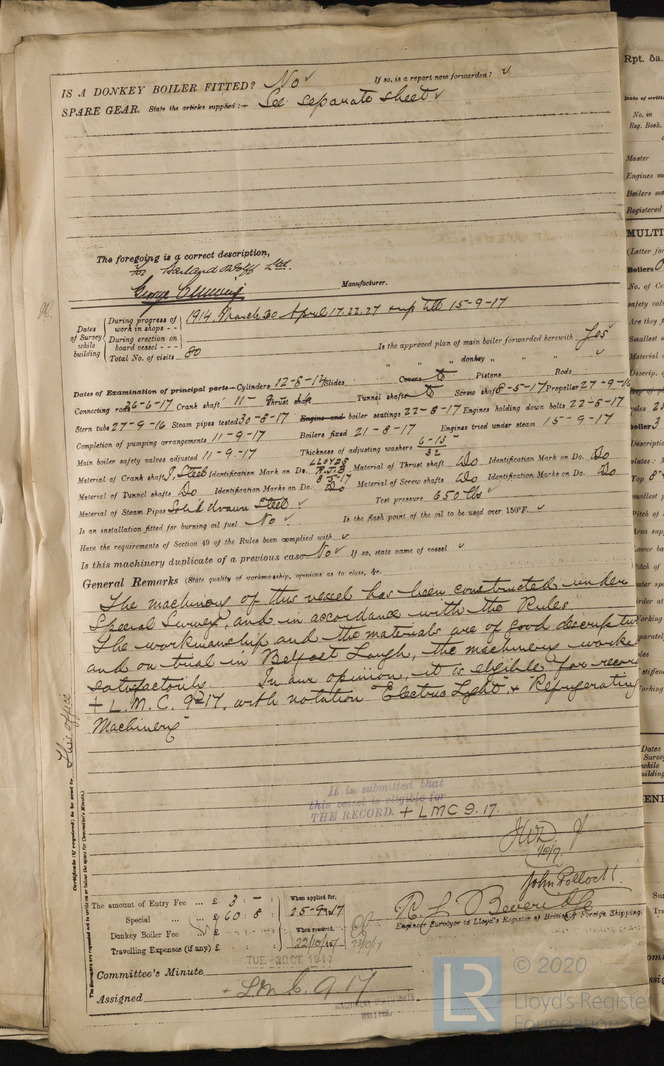 IS A DONKEY BOILER FITTED? No ✓ If so, is a report now forwarded? ✓
SPARE GEAR. State the articles supplied:— See separate sheet ✓
The foregoing is a correct description,
for Harland & Wolff Ltd.
George Cumming Manufacturer.
Dates of Survey while building
During progress of work in shops - - 1914. March 30 April 17.22.27 & up till 15-9-17
During erection on board vessel - - -
Total No. of visits 80
Is the approved plan of main boiler forwarded herewith Yes
" " " donkey " " " ✓
Dates of Examination of principal parts—Cylinders 12-8-17 Slides Covers Pistons Rods
Connecting rods 26-6-17 Crank shaft Thrust shaft Tunnel shafts Screw shaft 8-5-17 Propeller 27-9-16
Stern tube 27-9-16 Steam pipes tested 30-8-17 Engine and boiler seatings 22-8-17 Engines holding down bolts 22-8-17
Completion of pumping arrangements 11-9-17 Boilers fixed 21-8-17 Engines tried under steam 15-9-17
Main boiler safety valves adjusted 11-9-17 Thickness of adjusting washers
Material of Crank shaft I. Steel Identification Mark on Do. LLOYDS Material of Thrust shaft Do Identification Mark on Do. Do
Material of Tunnel shafts Do Identification Marks on Do. Do Material of Screw shafts Do Identification Marks on Do. Do
Material of Steam Pipes Solid drawn Steel ✓ Test pressure 650 lbs ✓
Is an installation fitted for burning oil fuel No ✓ Is the flash point of the oil to be used over 150°F. ✓
Have the requirements of Section 49 of the Rules been complied with ✓
Is this machinery duplicate of a previous case No ✓ If so, state name of vessel ✓
General Remarks (State quality of workmanship, opinions as to class, &c.
The machinery of this vessel has been constructed under
Special Survey, and in accordance with the Rules.
The workmanship and the materials are of good
and on trial in Belfast Lough, the machinery worked
satisfactorily. In our opinion, it is eligible for record
+ L.M.C. 9-17, with notation "Electric Light", & Refrigerating
Machinery"
It is submitted that
this vessel is eligible for
THE RECORD. + LMC 9.17.
John Pollock.
R. L. Beveridge
Engineer Surveyor to Lloyd's Register of British & Foreign Shipping.
Certificate (if required) to be sent to This office
The amount of Entry Fee ... £ 3 : - When applied for, 25-9-17
Special ... £ 60 : 8 :
Donkey Boiler Fee ... £ When received, 22/10/17
Travelling Expenses (if any) £
Committee's Minute TUE - 30 OCT 1917
Assigned + LMC. 9.17
© 2020
Lloyd's Register
Foundation
LR
Rpt. 5a.
No. in
Reg. Book.
Master
Engines
Boilers
Registered
MULTI
(Letter for
Boilers